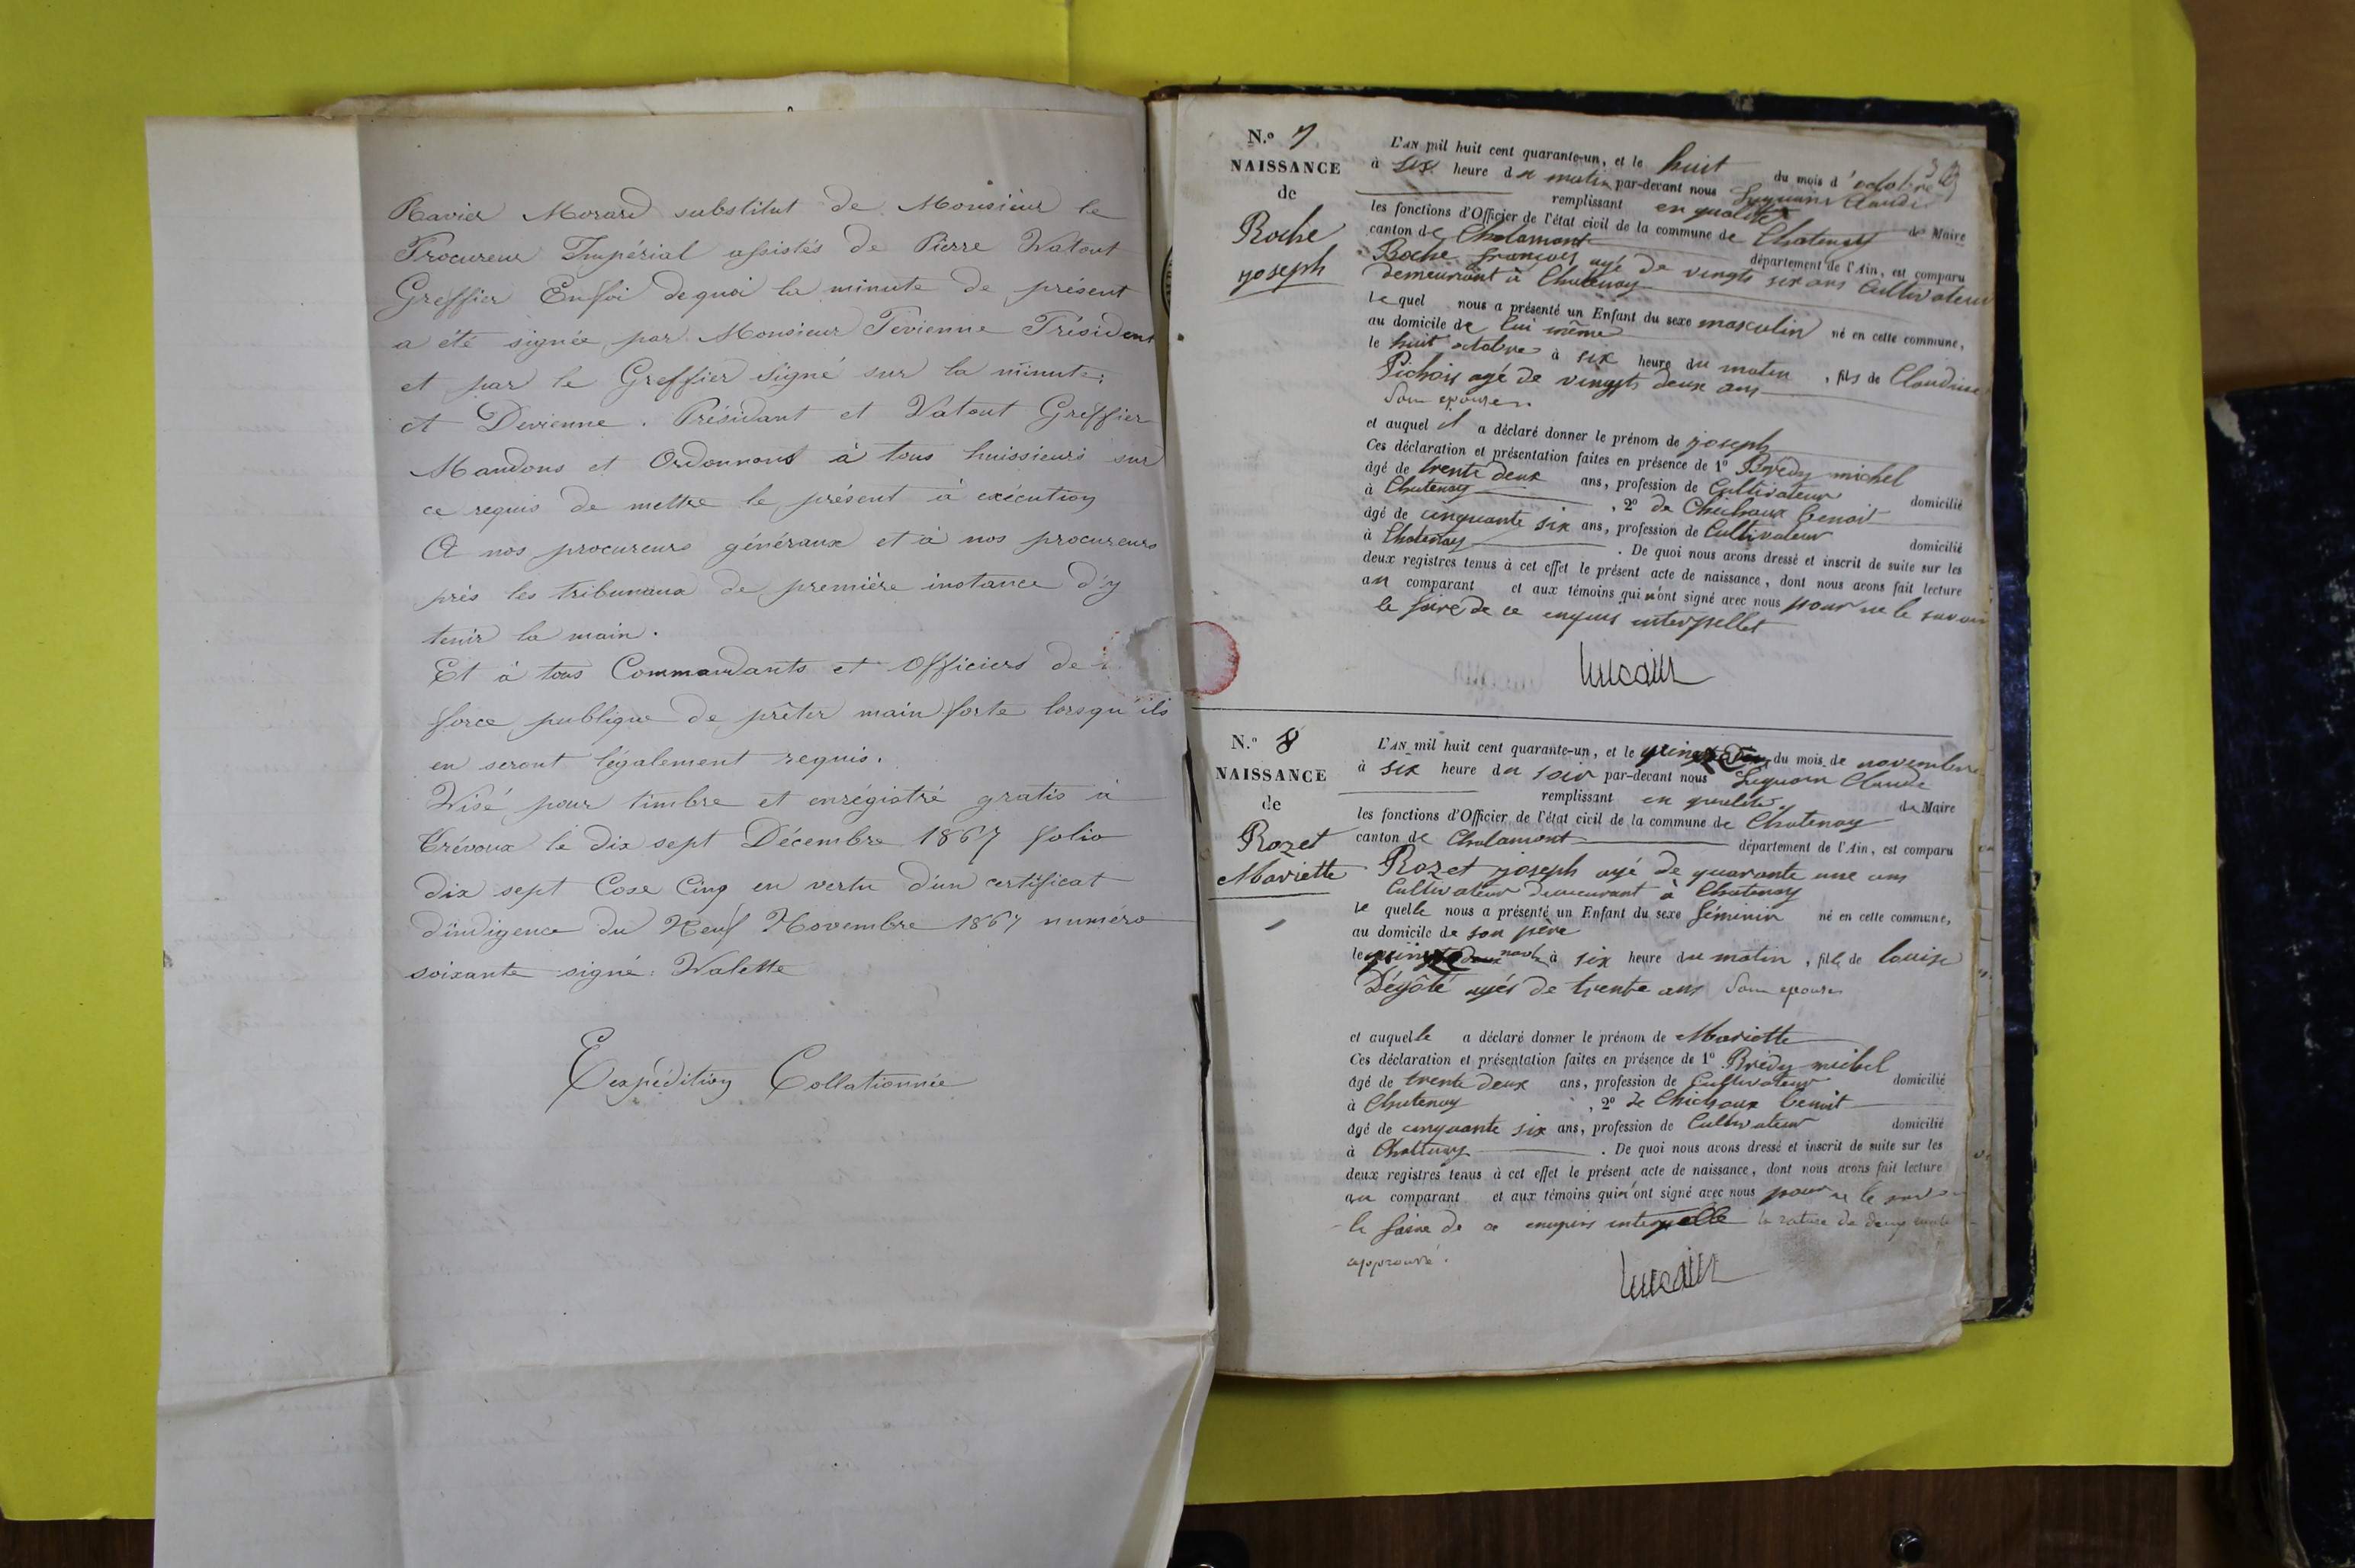 Ravier Morard substitut de Monsieur le
Procureur Impérial assistés de Pierre Watout
Greffier Enfoi dequoi la minute de présent
a été signée par Monsieur Devienne Président
et par le Greffier Signé sur la minute:
et Devienne. Présidant et Vatout Greffier
Mandons et Ordonnons à tous huissieurs sur
ce requis de mettre le présent à exécution
A nos procureurs généraux et à nos procureurs
près les tribunaux de première instance d'y
tenir la main.
Et à tous Commandants et Officiers de
force publique de prêter main forte lorsqu'ils
en seront légalement requis.
Wisé pour timbre et enrégistré gratis à
Trévoux le dix sept Décembre 1867 folio
dix sept Case Cinq en vertu d'un certificat
d'indigence du Neuf Novembre 1867 numéro
soixante signé: Walette
Expédition Collationnée
N.º 7
NAISSANCE
de
Roche
joseph
L'AN mil huit cent quarante-un, et le huit du mois d'octobre
à six heure du matin par-devant nous Luquain Claude
remplissant en qualité de Maire
les fonctions d'Officier de l'état civil de la commune de Chatenay
canton de Chalamont département de l'Ain, est comparu
Roche françois agé de vingts six ans Cultivateur
demeurant à Chatenay
le quel nous a présenté un Enfant du sexe masculin né en cette commune,
au domicile de lui même
le huit octobre à six heure du matin, fils de Claudine
Pichois agé de vingts deux ans
Son epouse
et auquel il a déclaré donner le prénom de joseph
Ces déclaration et présentation faites en présence de 1º Brédy michel
âgé de trente deux ans, profession de Cultivateur domicilié
à Chatenay, 2º de Chichoux benoit
âgé de cinquante six ans, profession de Cultivateur domicilié
à Chatenay. De quoi nous avons dressé et inscrit de suite sur les
deux registres tenus à cet effet le présent acte de naissance, dont nous avons fait lecture
au comparant et aux témoins qui n'ont signé avec nous pour ne le savoir
le faire de ce enquis interpellet
N.º 8
NAISSANCE
de
Rozet
Mariette
L'AN mil huit cent quarante-un, et le du mois de novembre
à six heure du soir par-devant nous Luquain Claude
remplissant en qualité de Maire
les fonctions d'Officier de l'état civil de la commune de Chatenay
canton de Chalamont département de l'Ain, est comparu
Rozet joseph agé de quarante une ans
Cultivateur demeurant à Chatenay
le quelle nous a présenté un Enfant du sexe féminin né en cette commune,
au domicile de son père
le à six heure du matin, fille de louise
Dégôté agés de trente ans Son epouse
et auquelle a déclaré donner le prénom de Mariette
Ces déclaration et présentation faites en présence de 1º Brédy michel
âgé de trente deux ans, profession de Cultivateur domicilié
à Chatenay, 2º de Chichoux benoit
âgé de cinquante six ans, profession de Cultivateur domicilié
à Chattenay. De quoi nous avons dressé et inscrit de suite sur les
deux registres tenus à cet effet le présent acte de naissance, dont nous avons fait lecture
au comparant et aux témoins qui n'ont signé avec nous pour ne le
le faire de ce enquis interpelle la rature de deux mots
approuvé.